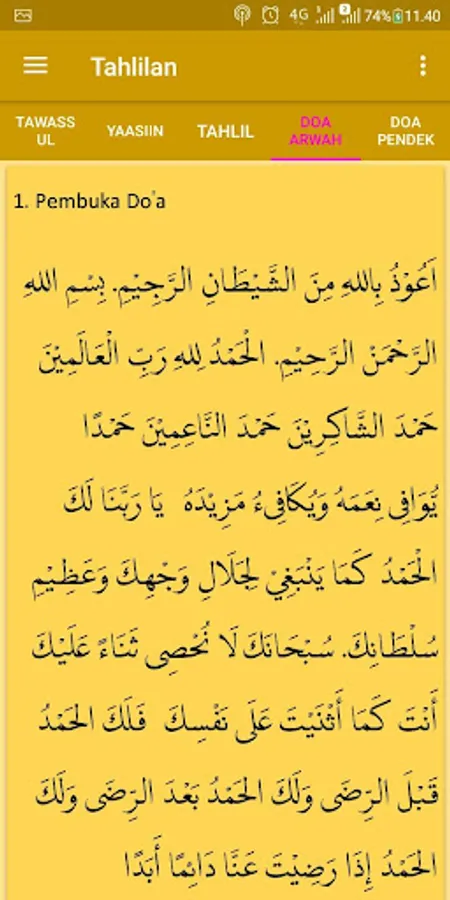 4G 2 74% 11.40
Tahlilan
TAWASS
UL
YAASIIN
TAHLIL
DOA
ARWAH
DOA
PENDEK
1. Pembuka Do'a
اَعُوْذُ بِاللهِ مِنَ الشَّيْطَانِ الرَّجِيْمِ. بِسْمِ اللهِ
الرَّحْمَنْ الرَّحِيْمِ. الْحَمْدُ لِلهِ رَبِّ الْعَالَمِيْنَ
حَمْدَ الشَّاكِرِيْنَ حَمْدَ النَّاعِمِيْنَ حَمْدًا
يُّوَافِى نِعَمَهُ وَيُكَافِىءُ مَزِيْدَهُ يَا رَبَّنَا لَكَ
الْحَمْدُ كَمَا يَنْبَغِيْ لِجَلَالِ وَجْهِكَ وَعَظِيْمِ
سُلْطَانِكَ. سُبْحَانَكَ لَا نُحْصِى ثَنَاءً عَلَيْكَ
أَنْتَ كَمَا أَثْنَيْتَ عَلَى نَفْسِكَ فَلَكَ الحَمْدُ
قَبْلَ الرِّضَى وَلَكَ الحَمْدُ بَعْدَ الرِّضَى وَلَكَ
الحَمْدُ إِذَا رَضِيْتَ عَنَّا دَائِمًا أَبَدًا